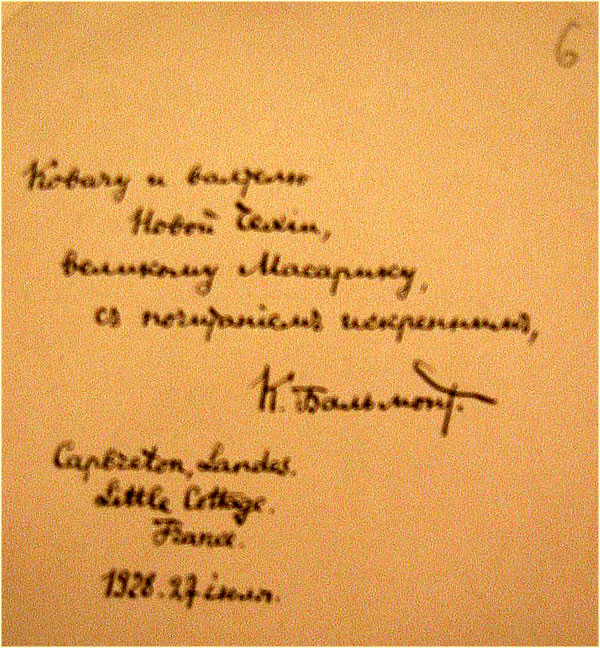 6
Ковачу и ваятелю
Новой Чехiи,
великому Масарику,
съ почитанiемъ искреннимъ,
К. Бальмонт.
Capbreton, Landes.
Little Cottage.
France.
1928. 27 iюля.